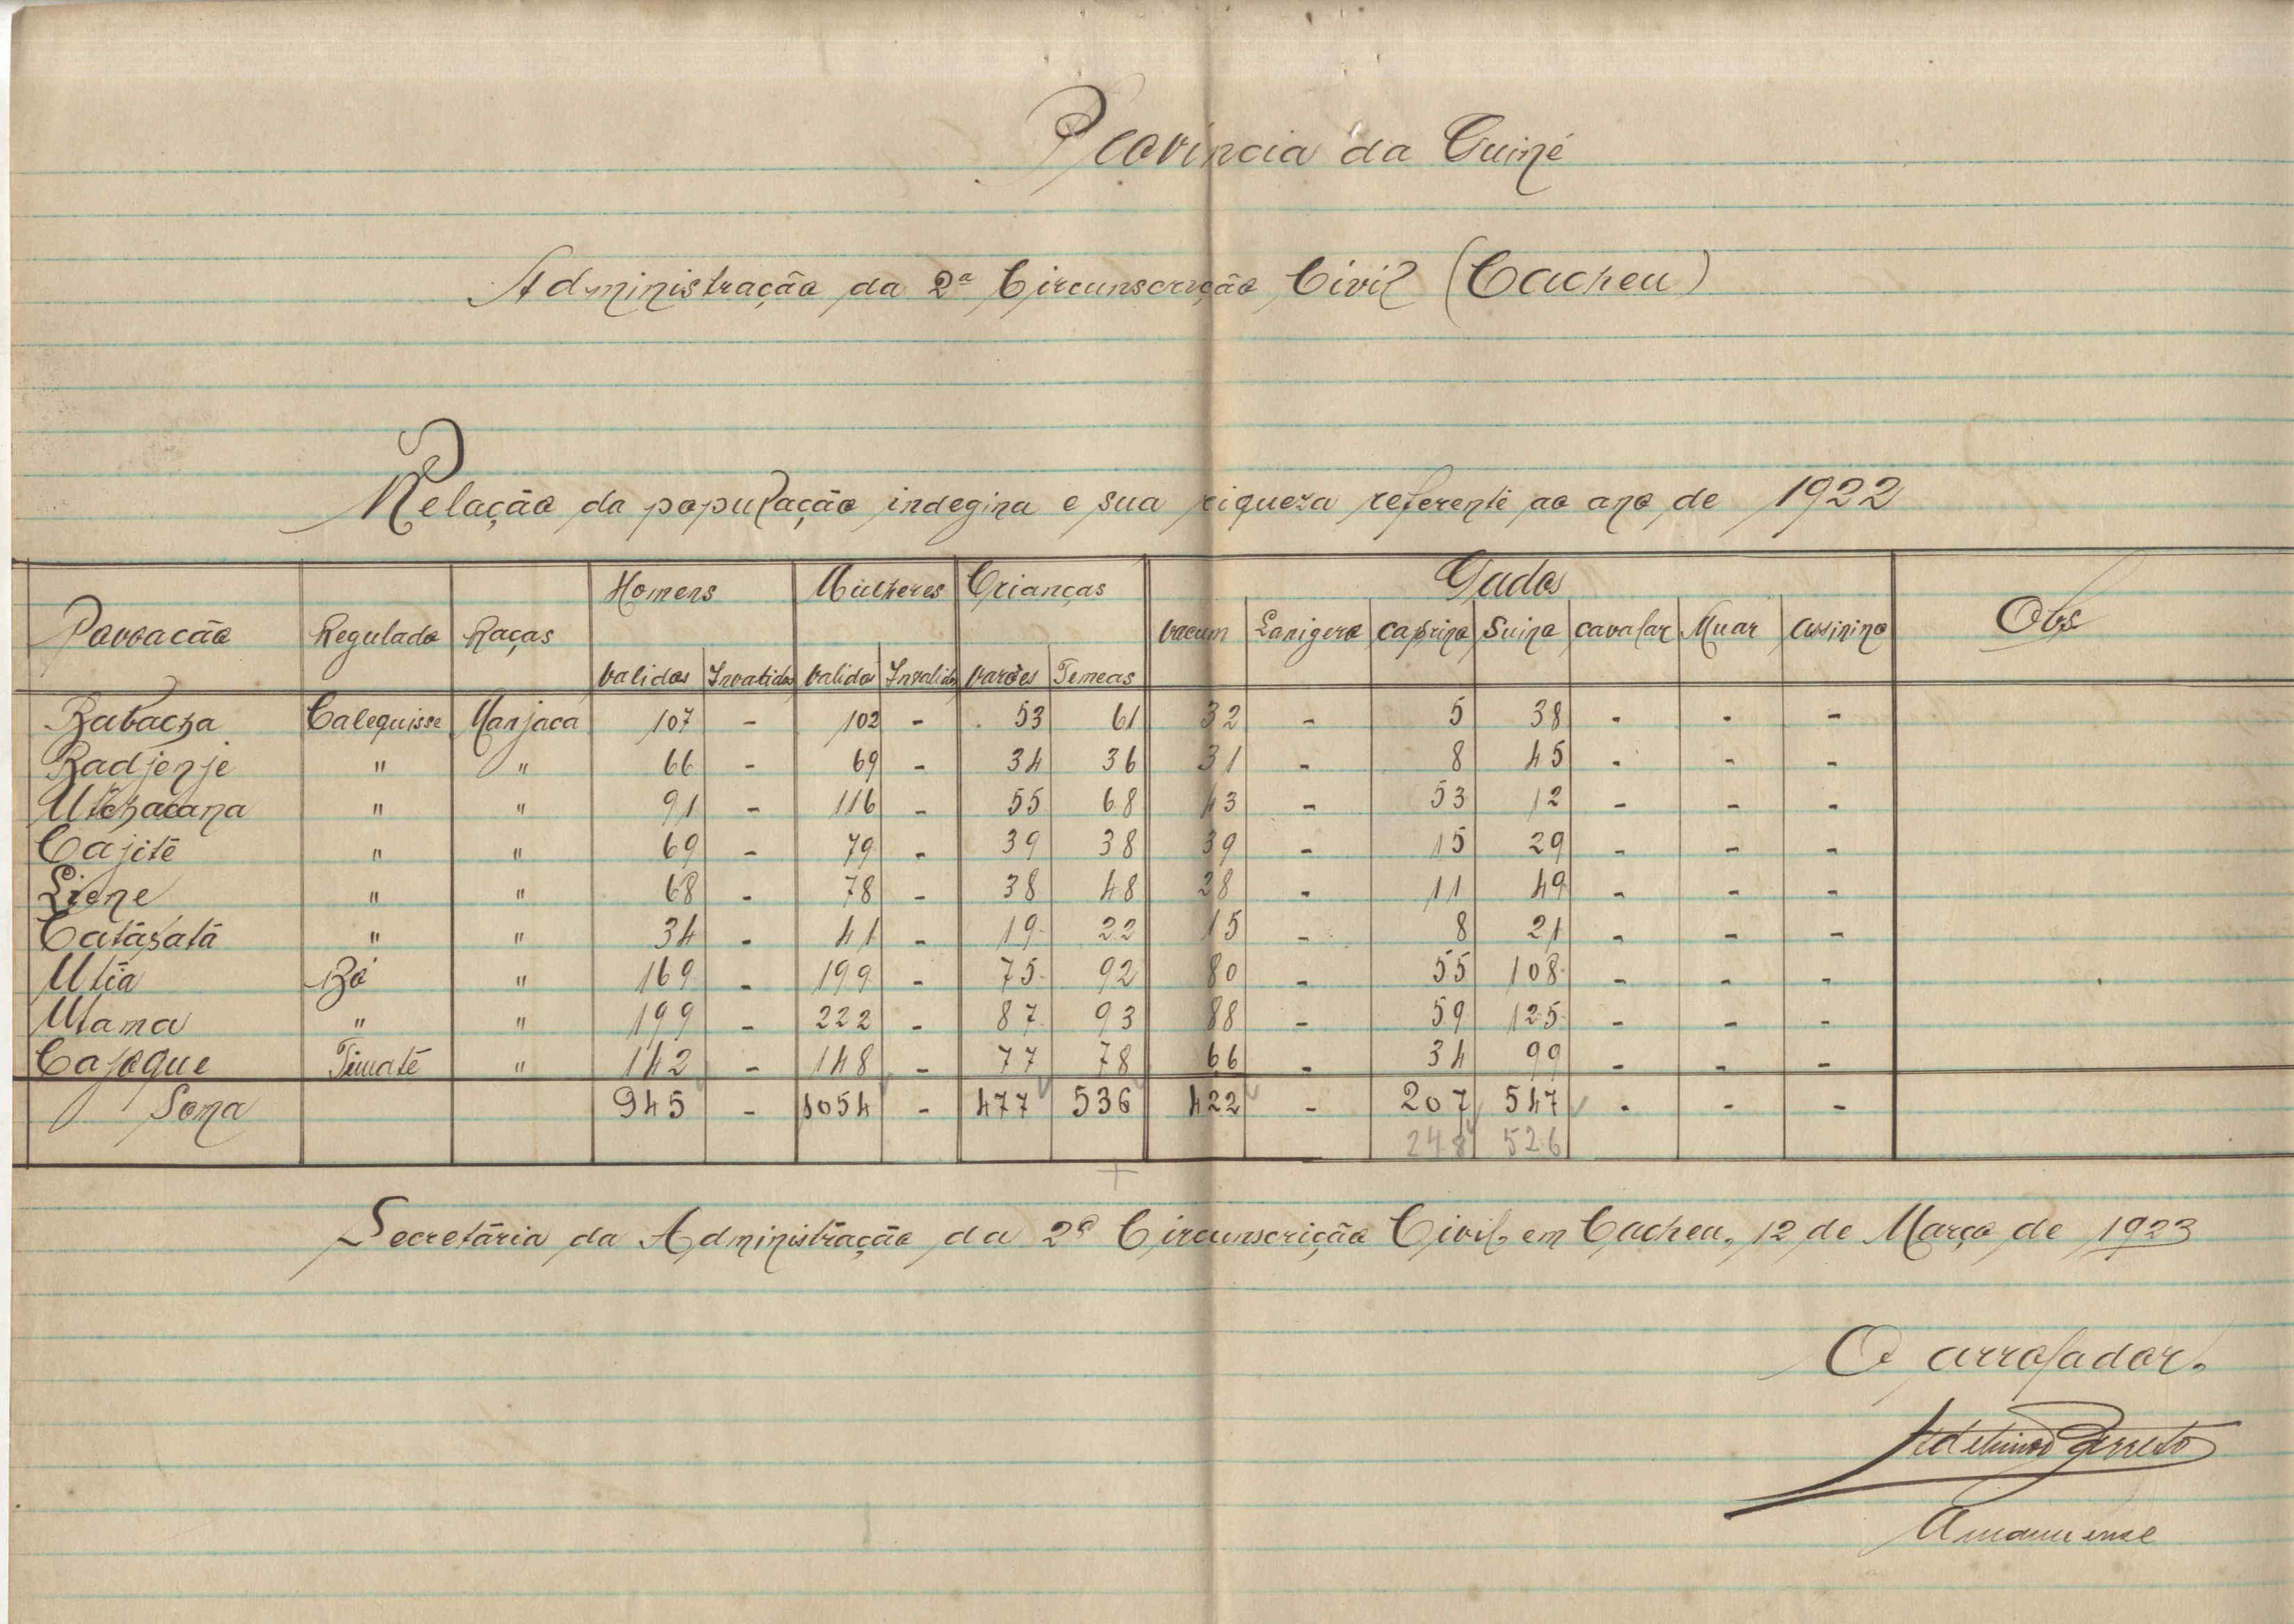 Provincia da Guiné
Administração da 2ª Circunscrição Civil (Cacheu)
Relação da população indegina e sua riqueza referente ao ano de 1922
Povoacão Regulado Raças Homens Mulheres Crianças Gados Obs
Validos Invalidos Validos Invalidos Varões Femeas Vacum Lanigero Caprino Suino Cavalar Muar Assinino
Babacha Calequisse Manjaca 107 - 102 - 53 61 32 - 5 38 - - -
Badjenje " " 66 - 69 - 34 36 31 - 8 45 - - -
Utchacana " " 91 - 116 - 55 68 43 - 53 12 - - -
Cajitê " " 69 - 79 - 39 38 39 - 15 29 - - -
Liene " " 68 - 78 - 38 48 28 - 11 49 - - -
Catásatá " " 34 - 41 - 19 22 15 - 8 21 - - -
Utia Bó " 169 - 199 - 75 92 80 - 55 108 - - -
Utama " " 199 - 222 - 87 93 88 - 59 125 - - -
Cajogue Timatê " 142 - 148 - 77 78 66 - 34 99 - - -
Soma 945 - 1054 - 477 536 422 - 207 547 - - -
248 526
Secretária da Administração da 2ª Circunscrição Civil em Cacheu, 12 de Março de 1923
O arrolador.
Barreto
Amanuense